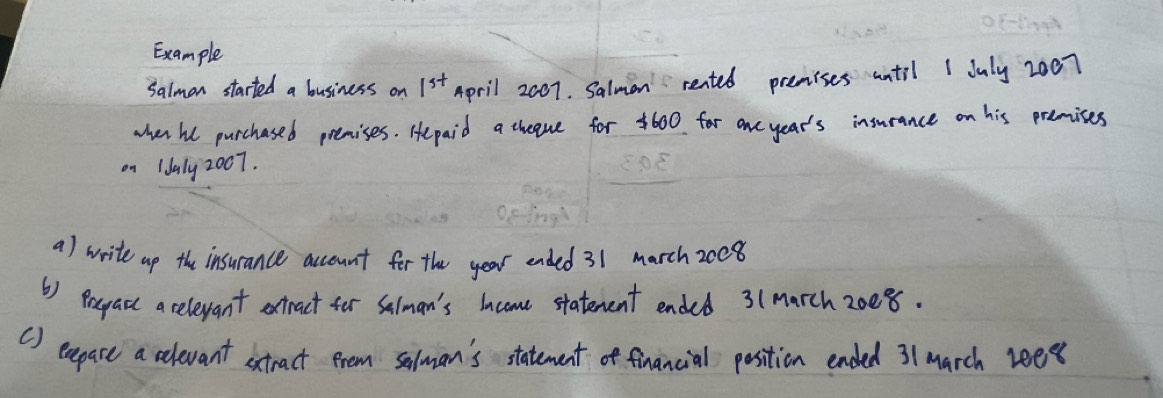 Example
Salman started a business on 1st April 2007. Salman rented premises until 1 July 2007
when he purchased premises. He paid a cheque for $600 for one year's insurance on his premises
on 1 July 2007.
a) write up the insurance account for the year ended 31 March 2008
b) Prepare a relevant extract for Salman's Income statement ended 31 March 2008.
c) Prepare a relevant extract from Salman's statement of financial position ended 31 March 2008